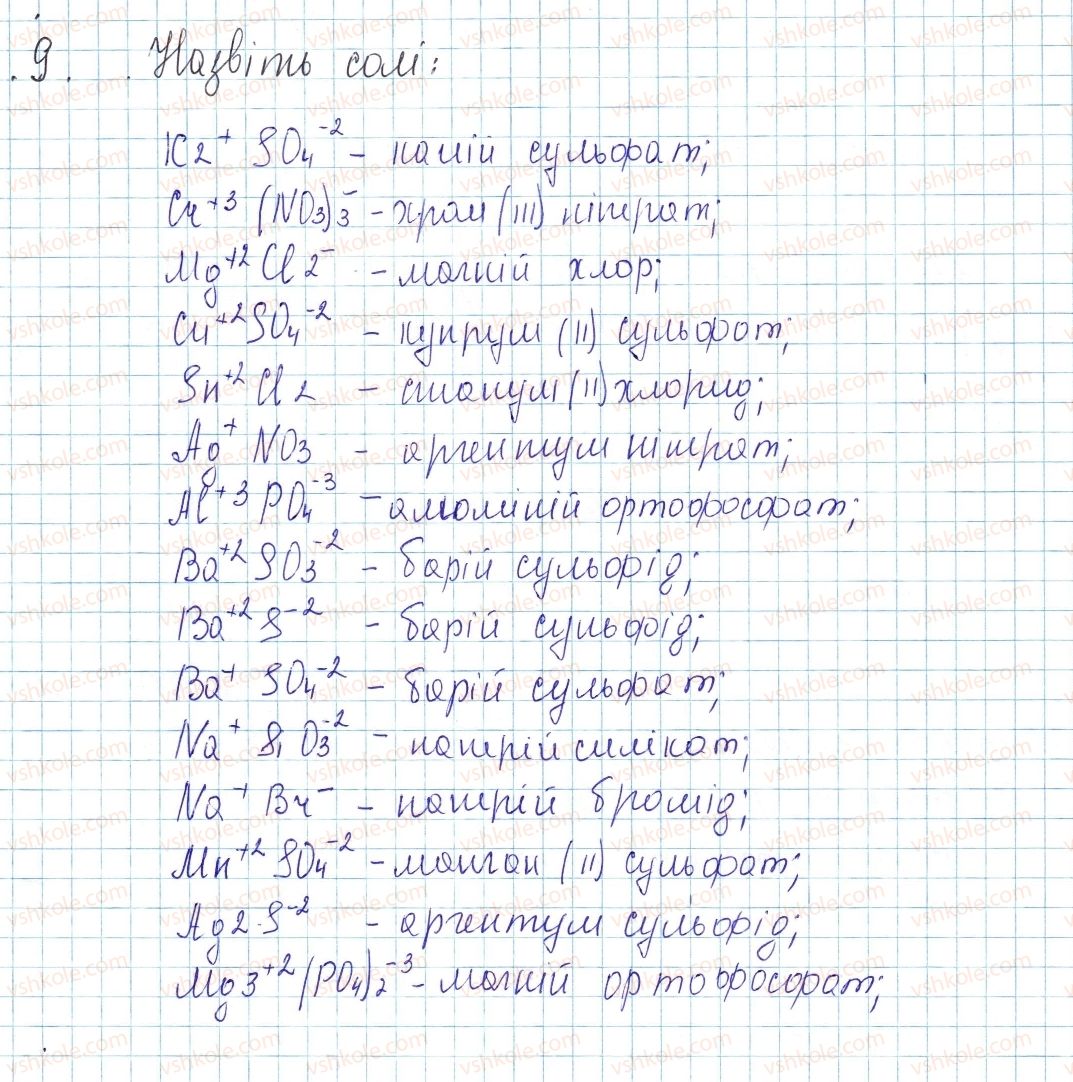 9. Назвіть солі:
K2⁺ SO4⁻² – калій сульфат;
Cr⁺³ (NO3)3⁻ – хром (III) нітрат;
Mg⁺² Cl2⁻ – магній хлор;
Cu⁺² SO4⁻² – купрум (II) сульфат;
Sn⁺² Cl2 – станум (II) хлорид;
Ag⁺ NO3 – аргентум нітрат;
Al⁺³ PO4⁻³ – алюміній ортофосфат;
Ba⁺² SO3⁻² – барій сульфід;
Ba⁺² S⁻² – барій сульфід;
Ba⁺ SO4⁻² – барій сульфат;
Na⁺ SiO3⁻² – натрій силікат;
Na⁺ Br⁻ – натрій бромід;
Mn⁺² SO4⁻² – манган (II) сульфат;
Ag2 S⁻² – аргентум сульфід;
Mg3⁺² (PO4)2⁻³ – магній ортофосфат;
vshkole.com